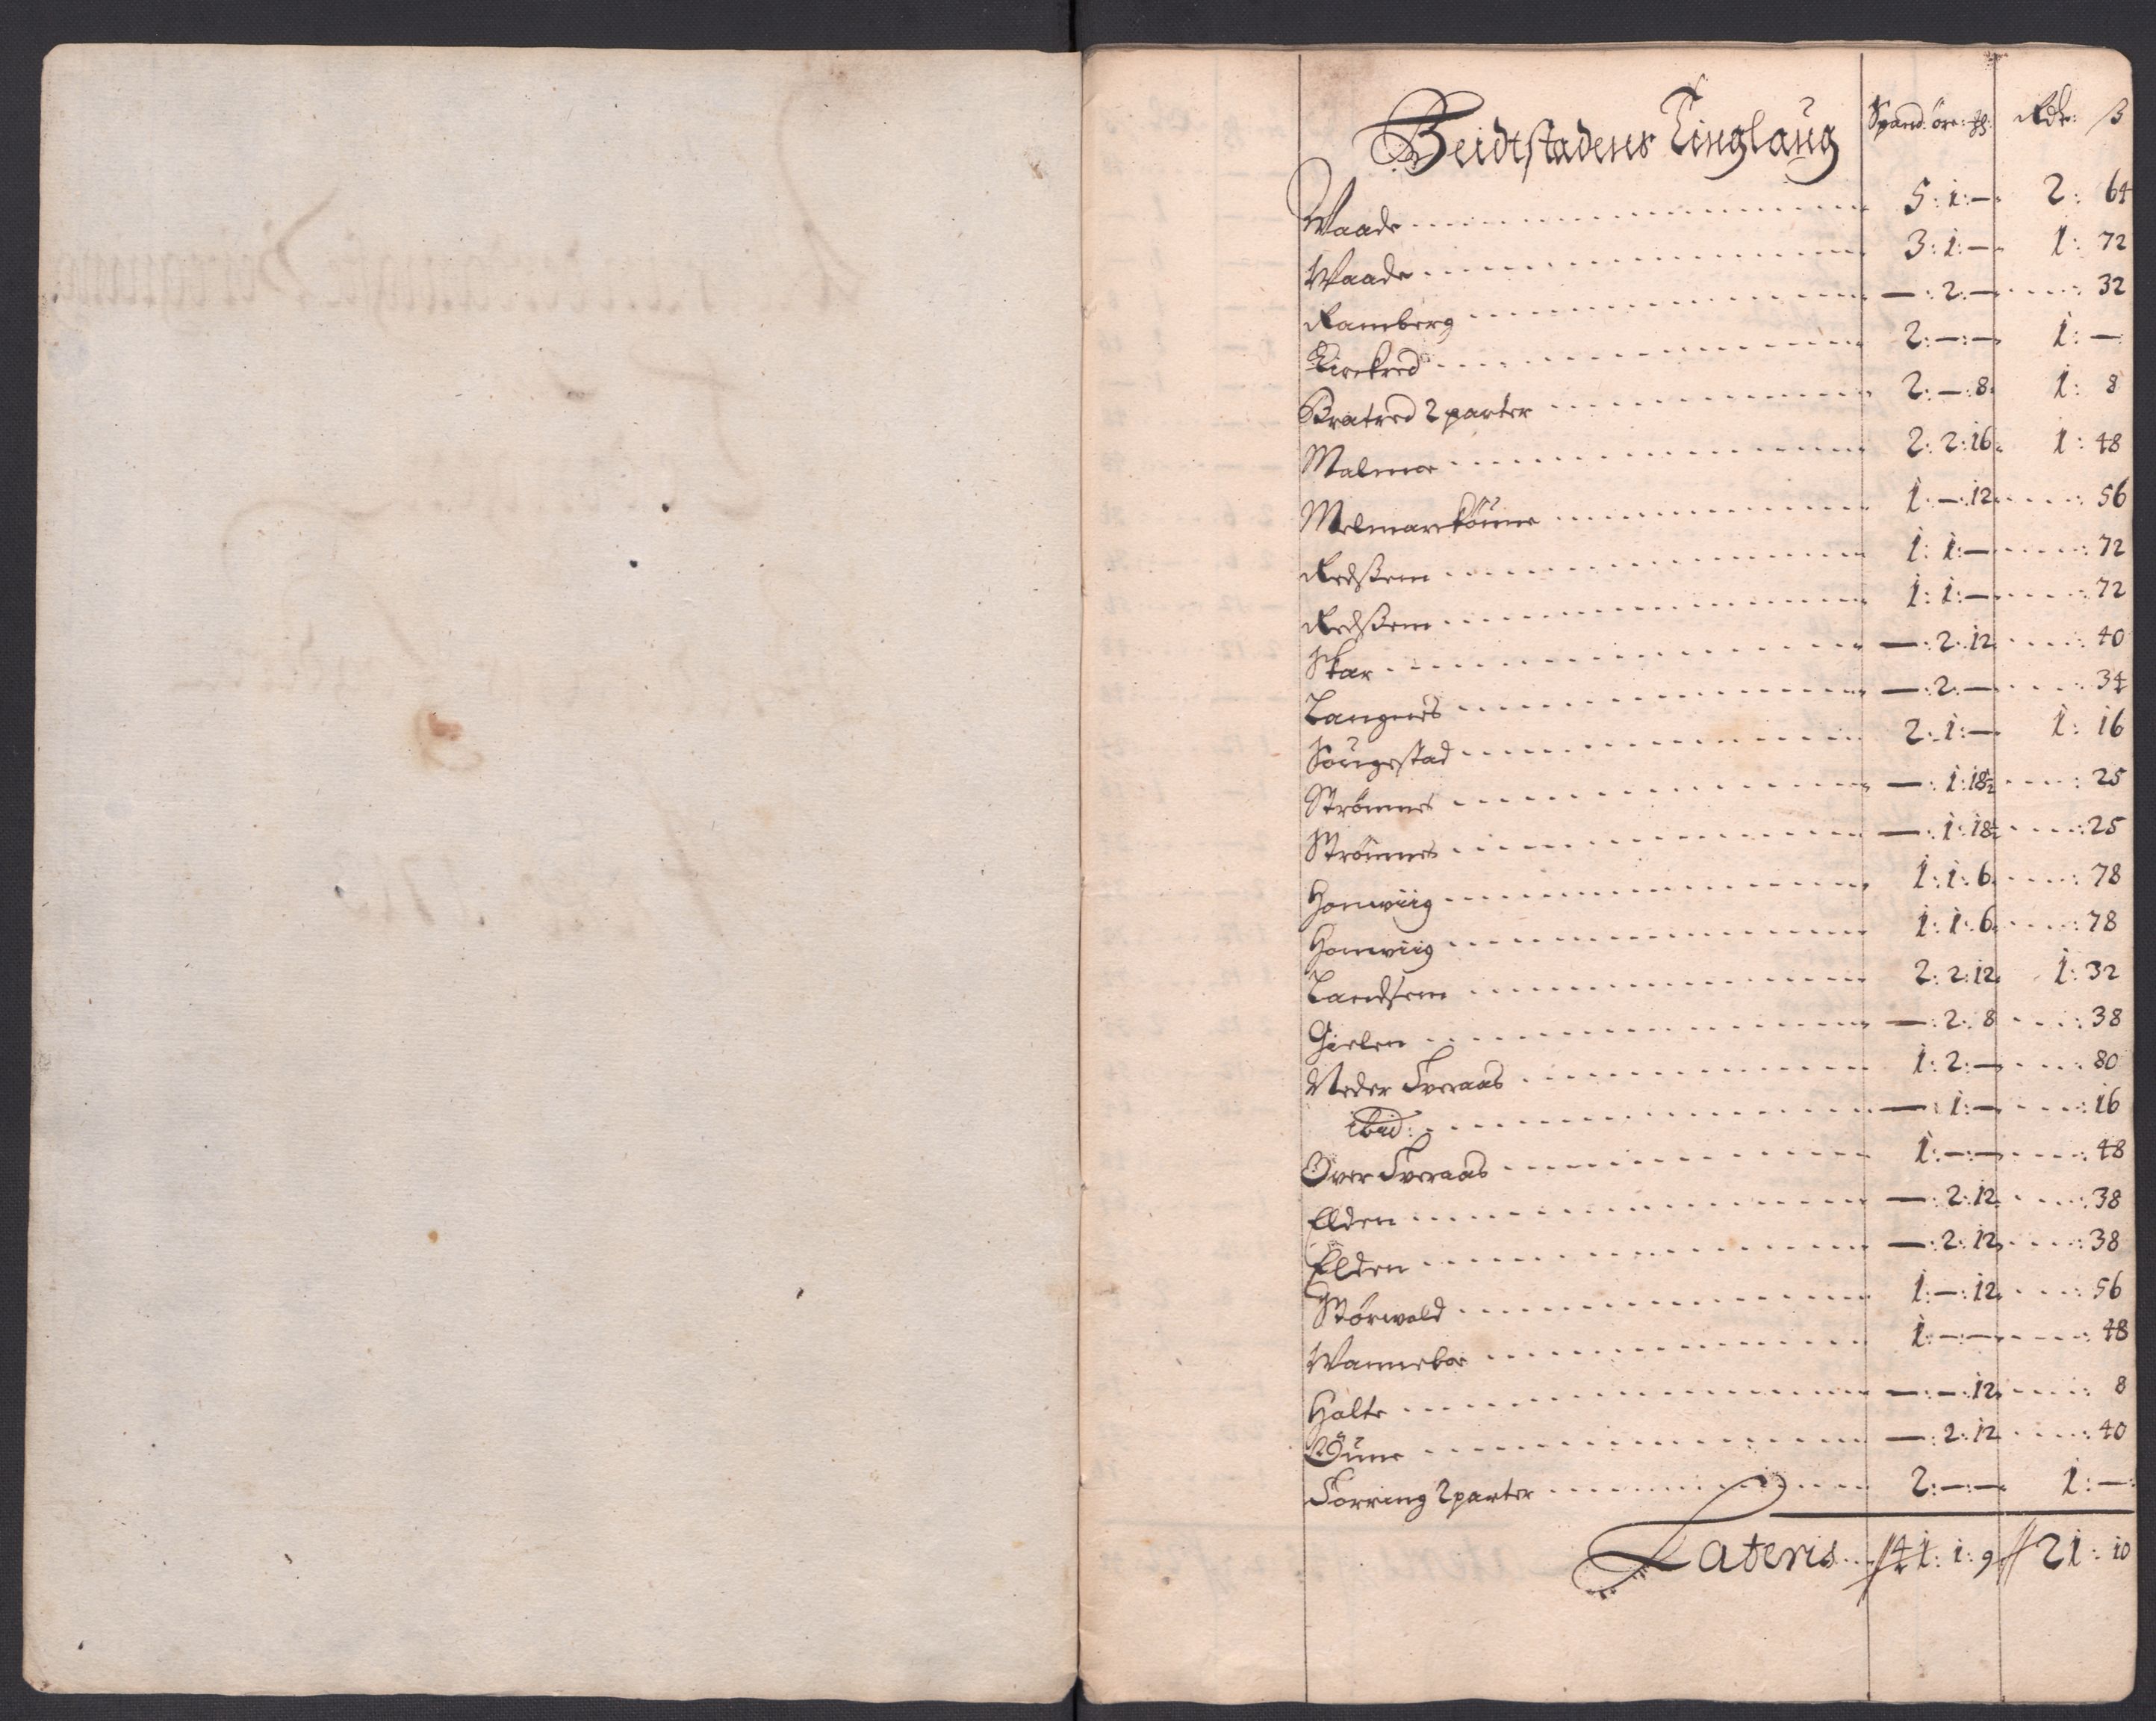 Beidtstadens Tinglaug Spand: öre: Rdr: ß
Waade 5: 1: — 2: 64
Waade 3: 1: — 1: 72
Ramberg —: 2: — 32
Kirkred 2: —: — 1: —
Bratred 2 parter 2: —: 8 1: 8
Malmoe 2: 2: 16 1: 48
1: —: 12 56
Redßem 1: 1: — 72
Redßem 1: 1: — 72
Skar —: 2: 12 40
Langnes —: 2: — 34
Sougestad 2: 1: — 1: 16
Strömnes —: 1: 18½ 25
Strömnes —: 1: 18½ 25
Honwiig 1: 1: 6 78
Honwiig 1: 1: 6 78
Landsem 2: 2: 12 1: 32
Gielen —: 2: 8 38
Neder Tveraas 1: 2: — 80
ibid: —: 1: — 16
Over Tveraas 1: —: — 48
Elden —: 2: 12 38
Elden —: 2: 12 38
Störwold 1: —: 12 56
Wanneboe 1: —: — 48
Holte —: —: 12 8
Öune —: 2: 12 40
Torring 2 parter 2: —: — 1: —
Lateris 41: 1: 9 21: 10